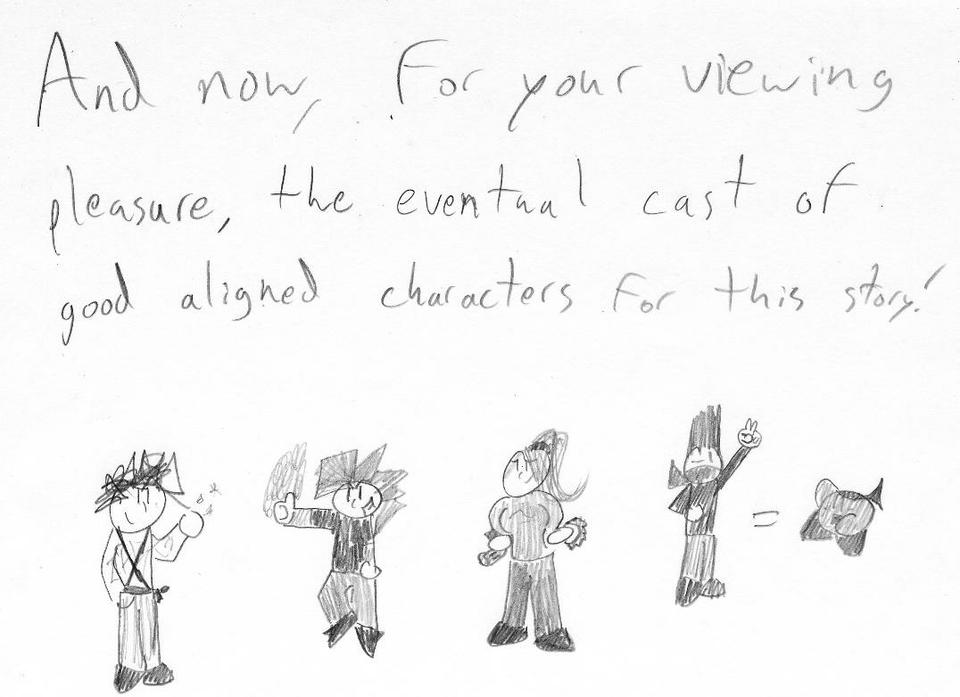 And now, For your viewing
pleasure, the eventual cast of
good aligned characters for this story!
=